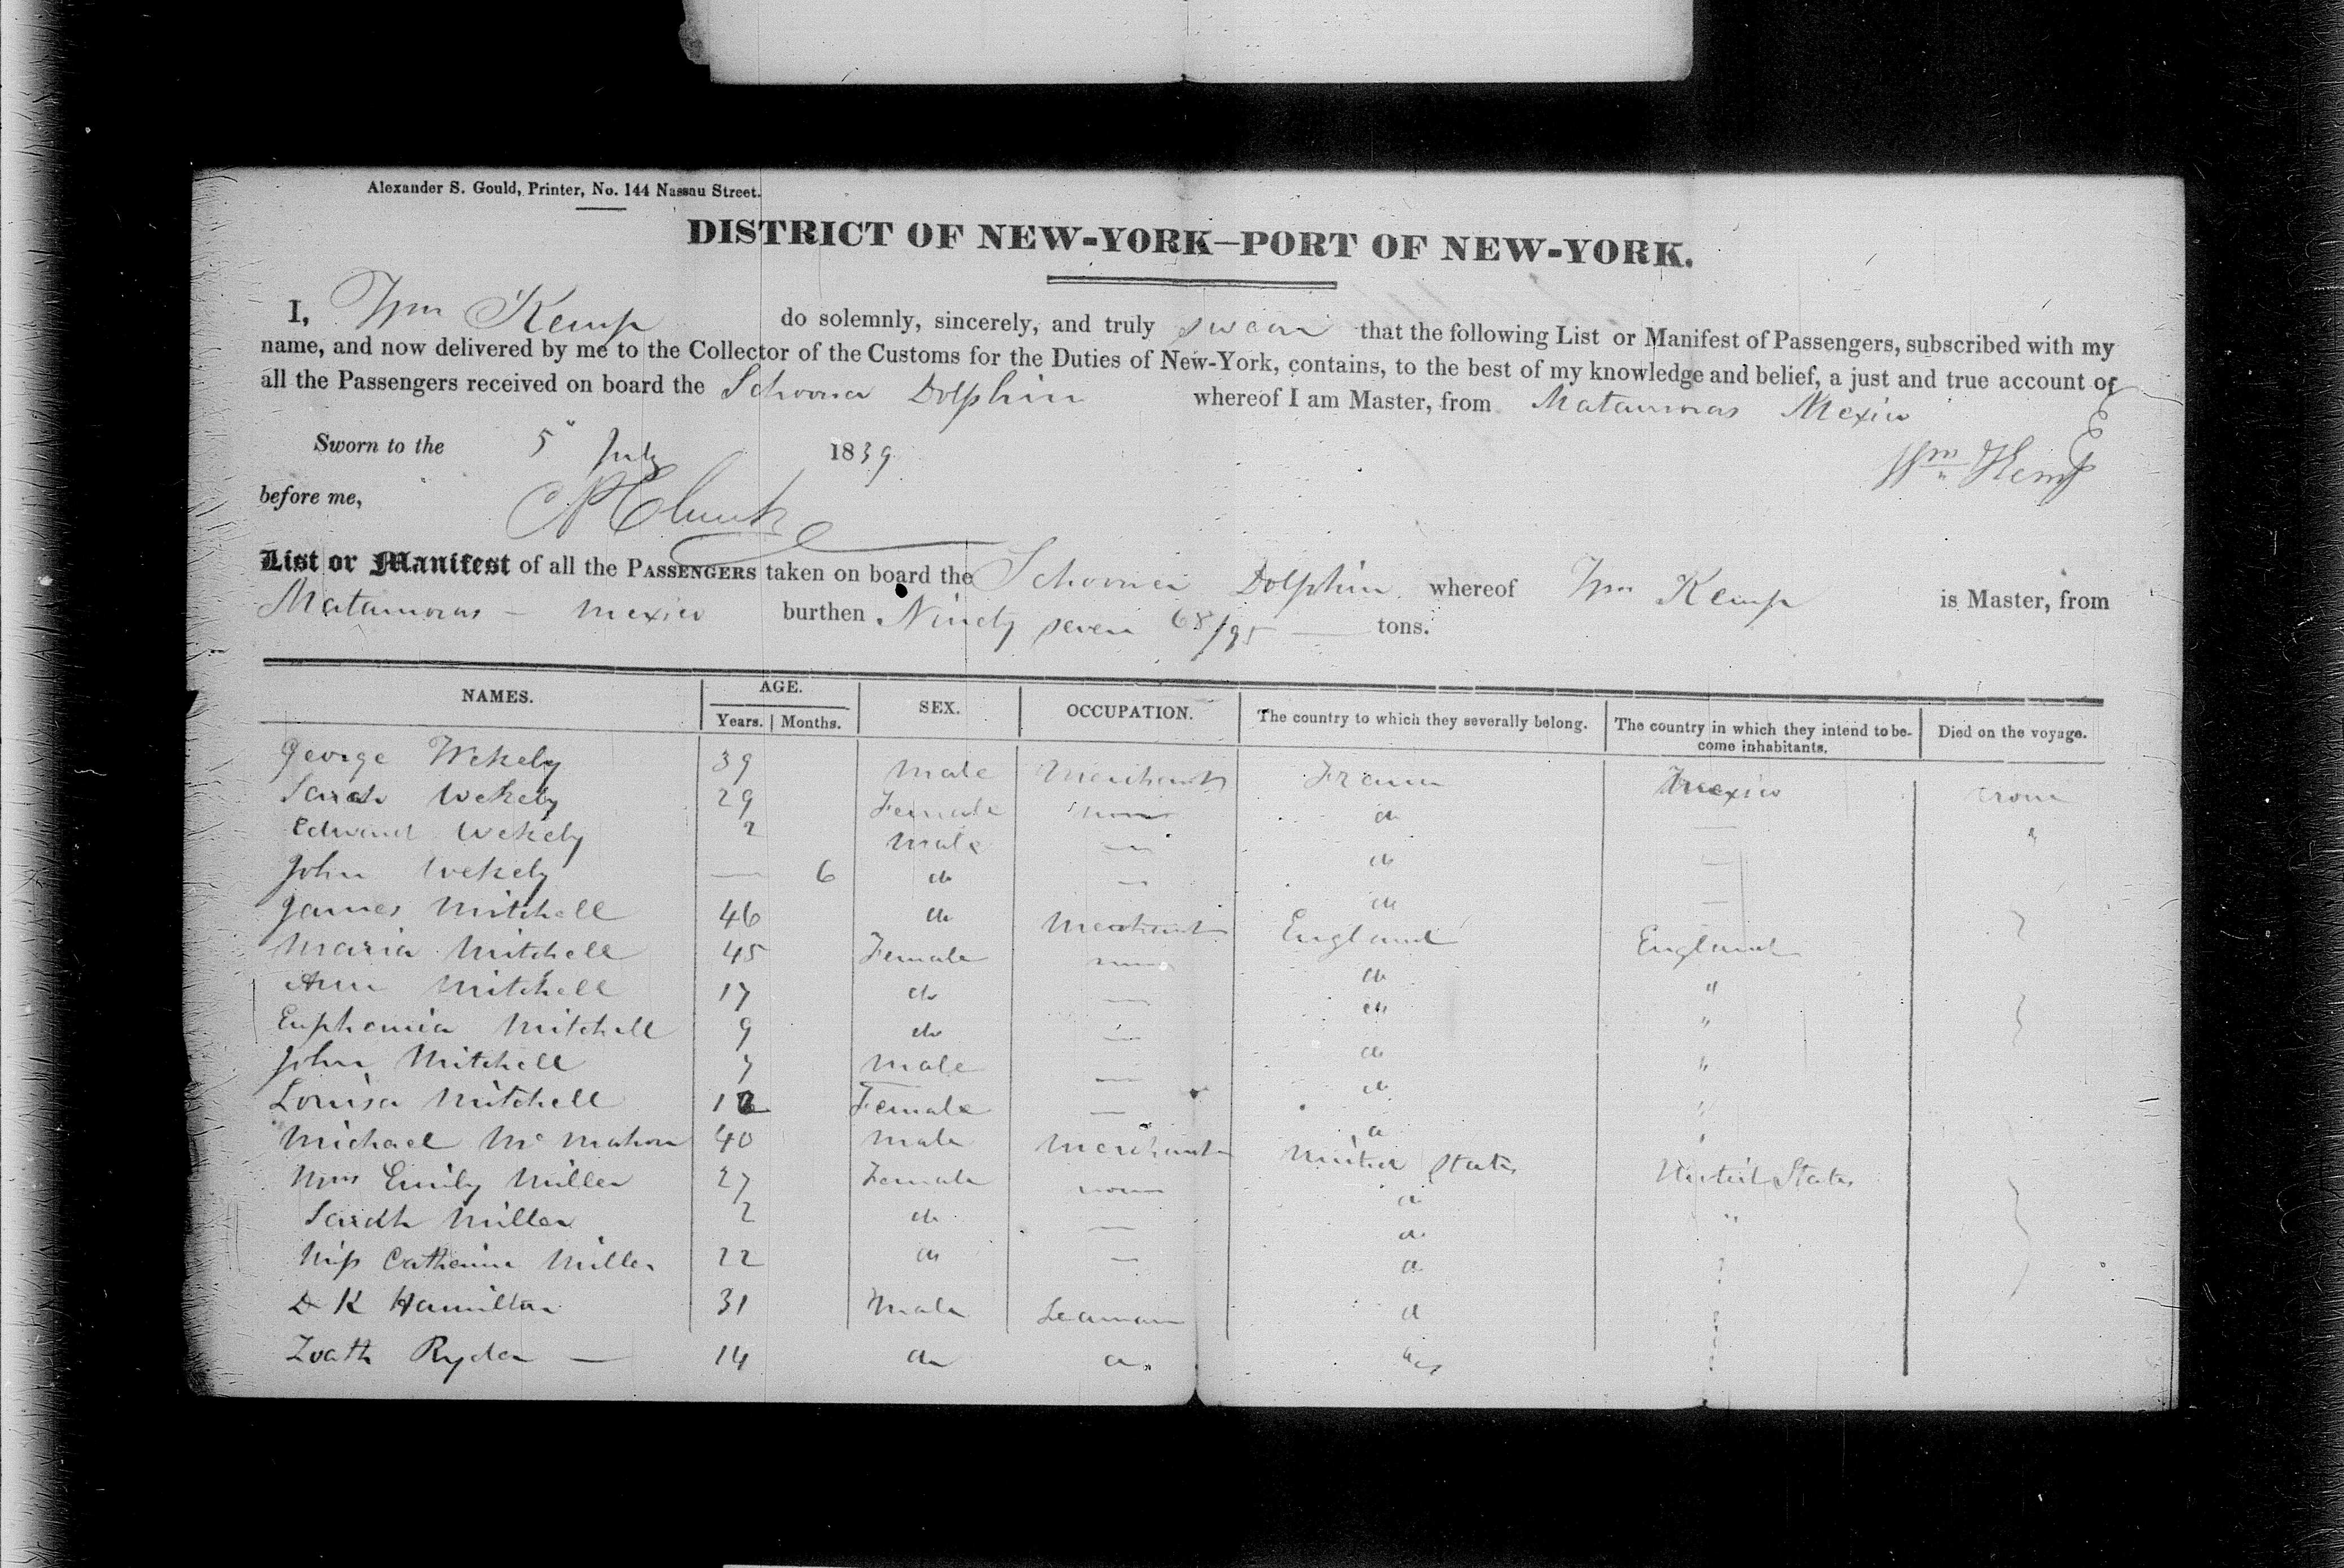 Alexander S. Gould, Printer, No. 144 Nassau Street.
DISTRICT OF NEW-YORK—PORT OF NEW-YORK.
I, Wm Kemp do solemnly, sincerely, and truly swear that the following List or Manifest of Passengers, subscribed with my
name, and now delivered by me to the Collector of the Customs for the Duties of New-York, contains, to the best of my knowledge and belief, a just and true account of
all the Passengers received on board the Schooner Dolphin whereof I am Master, from Matamoras Mexico
Sworn to the 5" July 1839
Wm Kemp
before me,
List or Manifest of all the PASSENGERS taken on board the Schooner Dolphin whereof Wm Kemp is Master, from
Matamoras — Mexico burthen Ninety seven 68/95 — tons.
NAMES. AGE. SEX. OCCUPATION. The country to which they severally belong. The country in which they intend to be- Died on the voyage.
Years. Months. come inhabitants.
George Wekely 39 Male Merchant France Mexico none
Sarah Wekely 29 Female none do — "
Edward Wekely 2 Male — do —
John Wekely — 6 do — do —
James Mitchell 46 do Merchant England England
Maria Mitchell 45 Female none do "
Ann Mitchell 17 do — do "
Euphemia Mitchell 9 do — do "
John Mitchell 7 Male — do "
Louisa Mitchell 12 Female — do "
Michael McMahon 40 Male Merchant United States United States
Mrs Emily Miller 27 Female none do "
Sarah Miller 2 do — do
Miss Catherine Miller 22 do — do "
D K Hamilton 31 Male Seaman do "
Zoath Ryder — 14 do do "